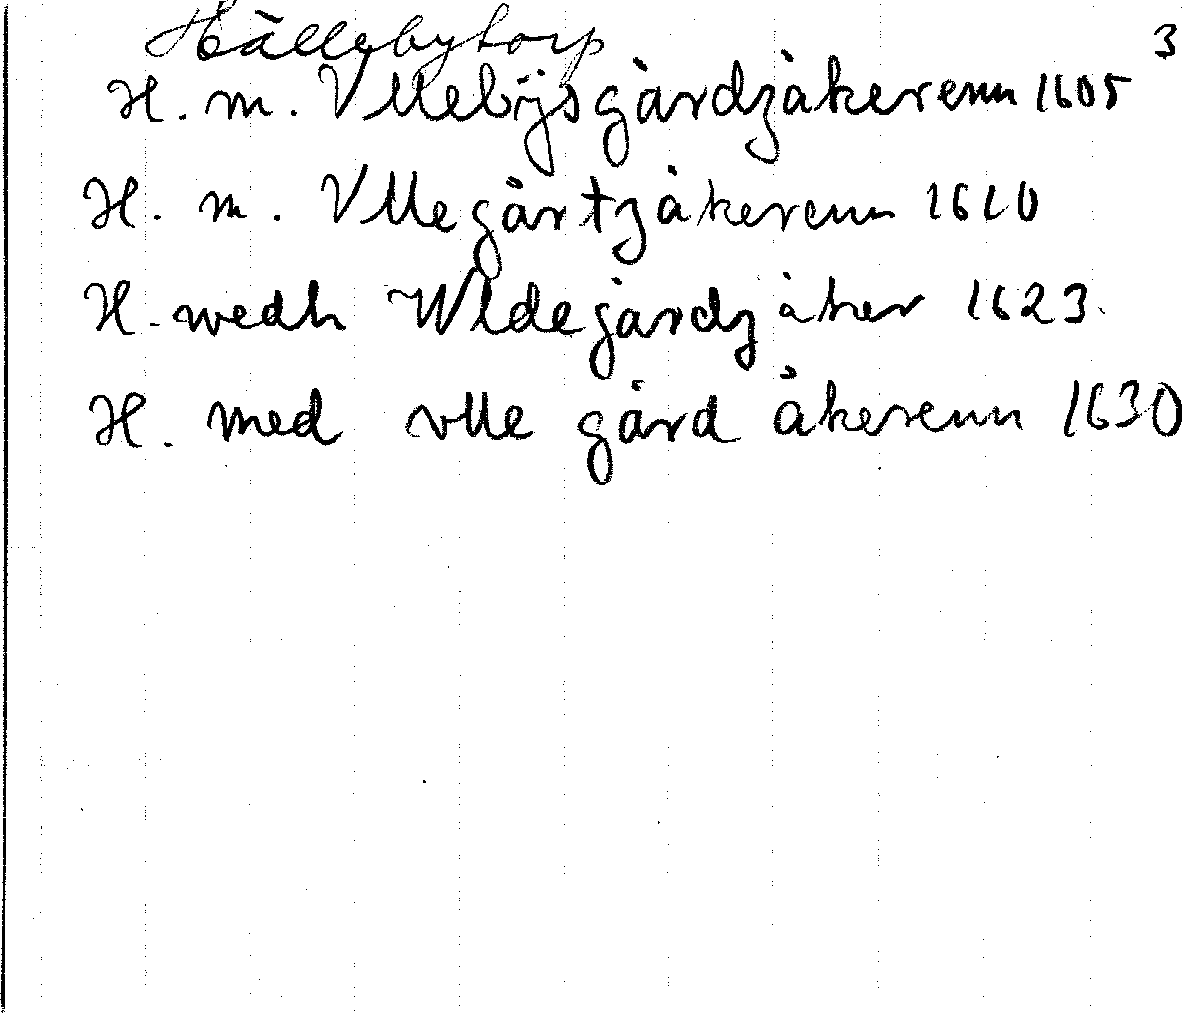 Hällebytorp 3
H. m. Vllebÿs gårdzåkerenn 1605
H. m. Vllegårtzåkerenn 1610
H. wedh Wldegårdzåker 1623.
H. med vlle gård åkerenn 1630